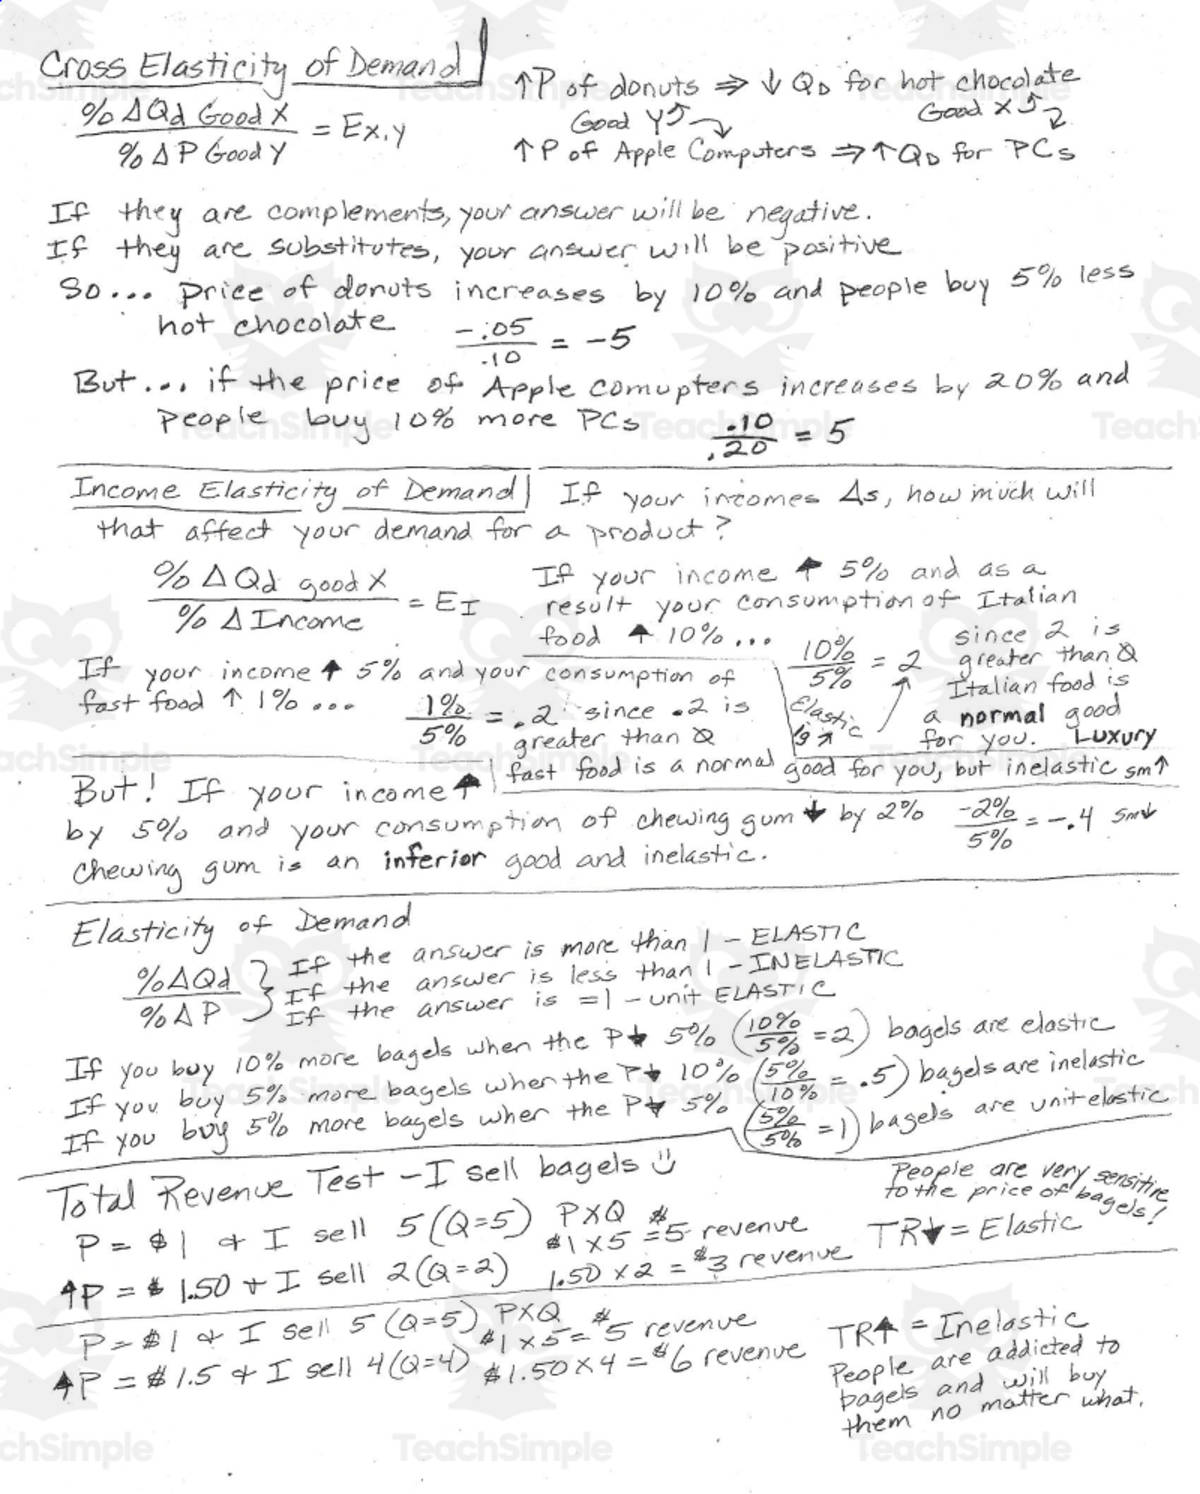 Cross Elasticity of Demand
%ΔQd Good X
%ΔP Good Y
= Ex,y
↑P of donuts ⇒ ↓ QD for hot chocolate
Good Y
Good X
↑P of Apple Computers ⇒ ↑QD for PCs
If they are complements, your answer will be negative.
If they are substitutes, your answer will be positive
So... price of donuts increases by 10% and people buy 5% less
hot chocolate -.05/.10 = -5
But... if the price of Apple comupters increases by 20% and
people buy 10% more PCs .10/.20 = 5
Income Elasticity of Demand | If your incomes Δs, how much will
that affect your demand for a product?
%ΔQd good X
%ΔIncome
= EI
If your income ↑ 5% and as a
result your consumption of Italian
food ↑ 10%... 10%/5% = 2
since 2 is
greater than 0
Italian food is
a normal good
for you. Luxury
Elastic
If your income ↑ 5% and your consumption of
fast food ↑ 1%... 1%/5% = .2 since .2 is
greater than 0
fast food is a normal good for you, but inelastic sm↑
But! If your income ↑
by 5% and your consumption of chewing gum ↓ by 2% -2%/5% = -.4 sm↓
chewing gum is an inferior good and inelastic.
Elasticity of Demand
%ΔQd
%ΔP
If the answer is more than 1 - ELASTIC
If the answer is less than 1 - INELASTIC
If the answer is =1 - unit ELASTIC
If you buy 10% more bagels when the P↓ 5% (10%/5% = 2) bagels are elastic
If you buy 5% more bagels when the P↓ 10% (5%/10% = .5) bagels are inelastic
If you buy 5% more bagels when the P↓ 5% (5%/5% = 1) bagels are unit elastic
Total Revenue Test - I sell bagels
People are very sensitive
to the price of bagels!
P = $1 & I sell 5 (Q=5) PXQ $1 x 5 = $5 revenue
TR↓ = Elastic
↑P = $1.50 + I sell 2 (Q=2) 1.50 x 2 = $3 revenue
P = $1 & I sell 5 (Q=5) PXQ $1 x 5 = $5 revenue
↑P = $1.5 & I sell 4 (Q=4) $1.50 x 4 = $6 revenue
TR↑ = Inelastic
People are addicted to
bagels and will buy
them no matter what.
TeachSimple